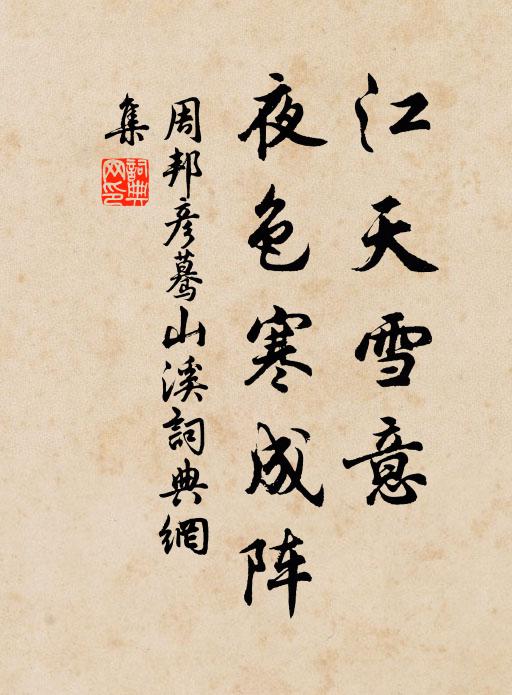 江天雪意
夜色寒成阵
周邦彦蓦山溪詞典網
集
詞典
网印